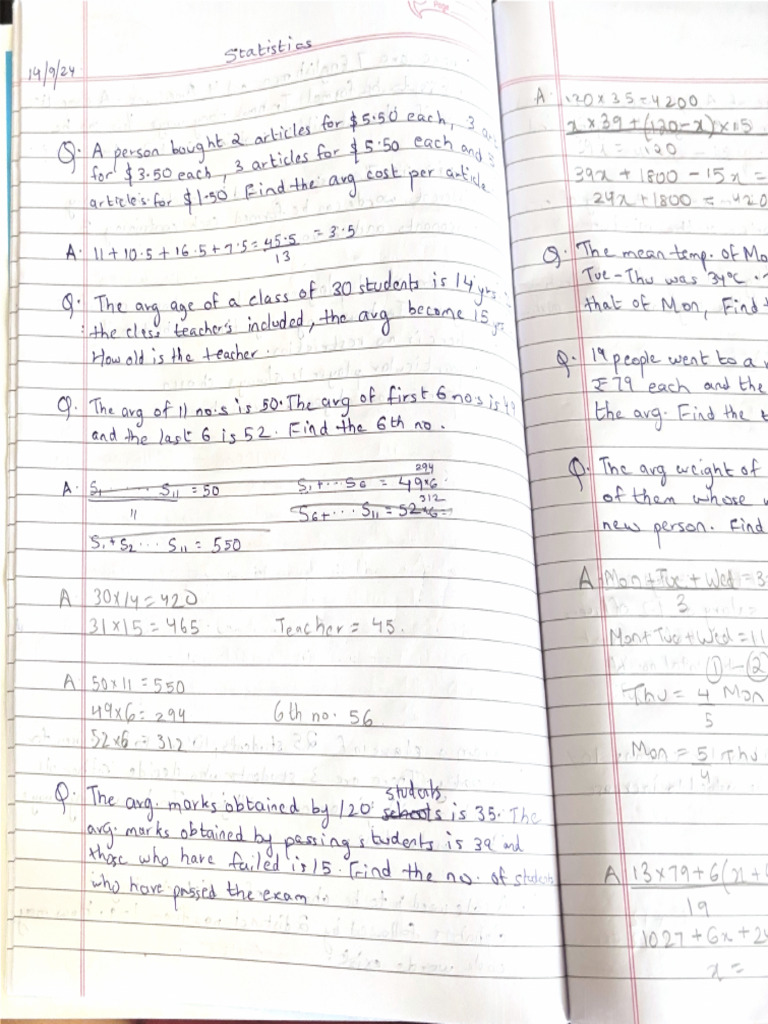 Page
14/9/24
Statistics
Q. A person bought 2 articles for $5.50 each, 3
for $3.50 each, 3 articles for $5.50 each and 5
articles for $1.50. Find the avg cost per article
A. 11 + 10.5 + 16.5 + 7.5 = 45.5 = 3.5
13
Q. The avg age of a class of 30 students is 14 yrs.
the class teacher's included, the avg become 15 yrs
How old is the teacher.
Q. The avg of 11 no.s is 50. The avg of first 6 no.s is 49
and the last 6 is 52. Find the 6th no.
A. S1 ... S11 = 50
11
S1 + ... S6 = 49×6 294
S6 + ... S11 = 52×6 312
S1 + S2 ... S11 = 550
A 30×14 = 420
31×15 = 465 Teacher = 45.
A 50×11 = 550
49×6 = 294 6th no. 56
52×6 = 312
Q. The avg. marks obtained by 120 schools students is 35. The
avg. marks obtained by passing students is 39 and
those who have failed is 15. Find the no. of students
who have passed the exam
A. 120×35 = 4200
x×39 + (120-x)×15
120
39x + 1800 - 15x =
24x + 1800 = 420
Q. The mean temp. of Mo
Tue - Thu was 34°C.
that of Mon, Find
Q. 19 people went to a
₹79 each and the
the avg. Find the
Q. The avg weight of
of them whose
new person. Find
A Mon + Tue + Wed = 3
3
Mon + Tue + Wed = 11
① - ②
Thu = 4 Mon
5
Mon = 5 Thu
4
A 13×79 + 6(x+
19
1027 + 6x + 2
x =